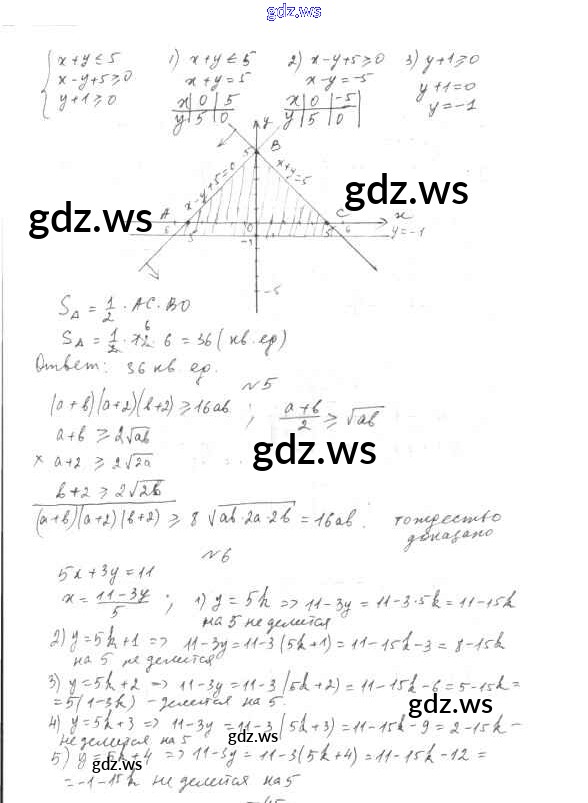 gdz.ws
x+y≤5 1) x+y≤5 2) x-y+5≥0 3) y+1≥0
x-y+5≥0 x+y=5 x-y=-5 y+1=0
y+1≥0 x|0|5 x|0|-5 y=-1
y|5|0 y|5|0
y
5 B
x-y+5=0 x+y=5
gdz.ws
gdz.ws
A C x
6 5 0 5 6 y=-1
-1
-5
S△ = 1/2 · AC · BO
S△ = 1/2 · 12 · 6 = 36 (кв. ед)
6
Ответ: 36 кв. ед.
№5
(a+b)(a+2)(b+2) ≥ 16ab ; (a+b)/2 ≥ √ab
a+b ≥ 2√ab
gdz.ws
× a+2 ≥ 2√2a
b+2 ≥ 2√2b
(a+b)(a+2)(b+2) ≥ 8 √ab·2a·2b = 16ab. тождество
доказано
gdz.ws
№6
5x+3y=11
x = (11-3y)/5 ; 1) y=5k => 11-3y = 11-3·5k = 11-15k
на 5 не делится
2) y=5k+1 => 11-3y = 11-3(5k+1) = 11-15k-3 = 8-15k
на 5 не делится
3) y=5k+2 => 11-3y = 11-3(5k+2) = 11-15k-6 = 5-15k =
= 5(1-3k) - делится на 5.
4) y=5k+3 => 11-3y = 11-3(5k+3) = 11-15k-9 = 2-15k -
не делится на 5
gdz.ws
5) y=5k+4 => 11-3y = 11-3(5k+4) = 11-15k-12 =
gdz.ws
= -1-15k не делится на 5